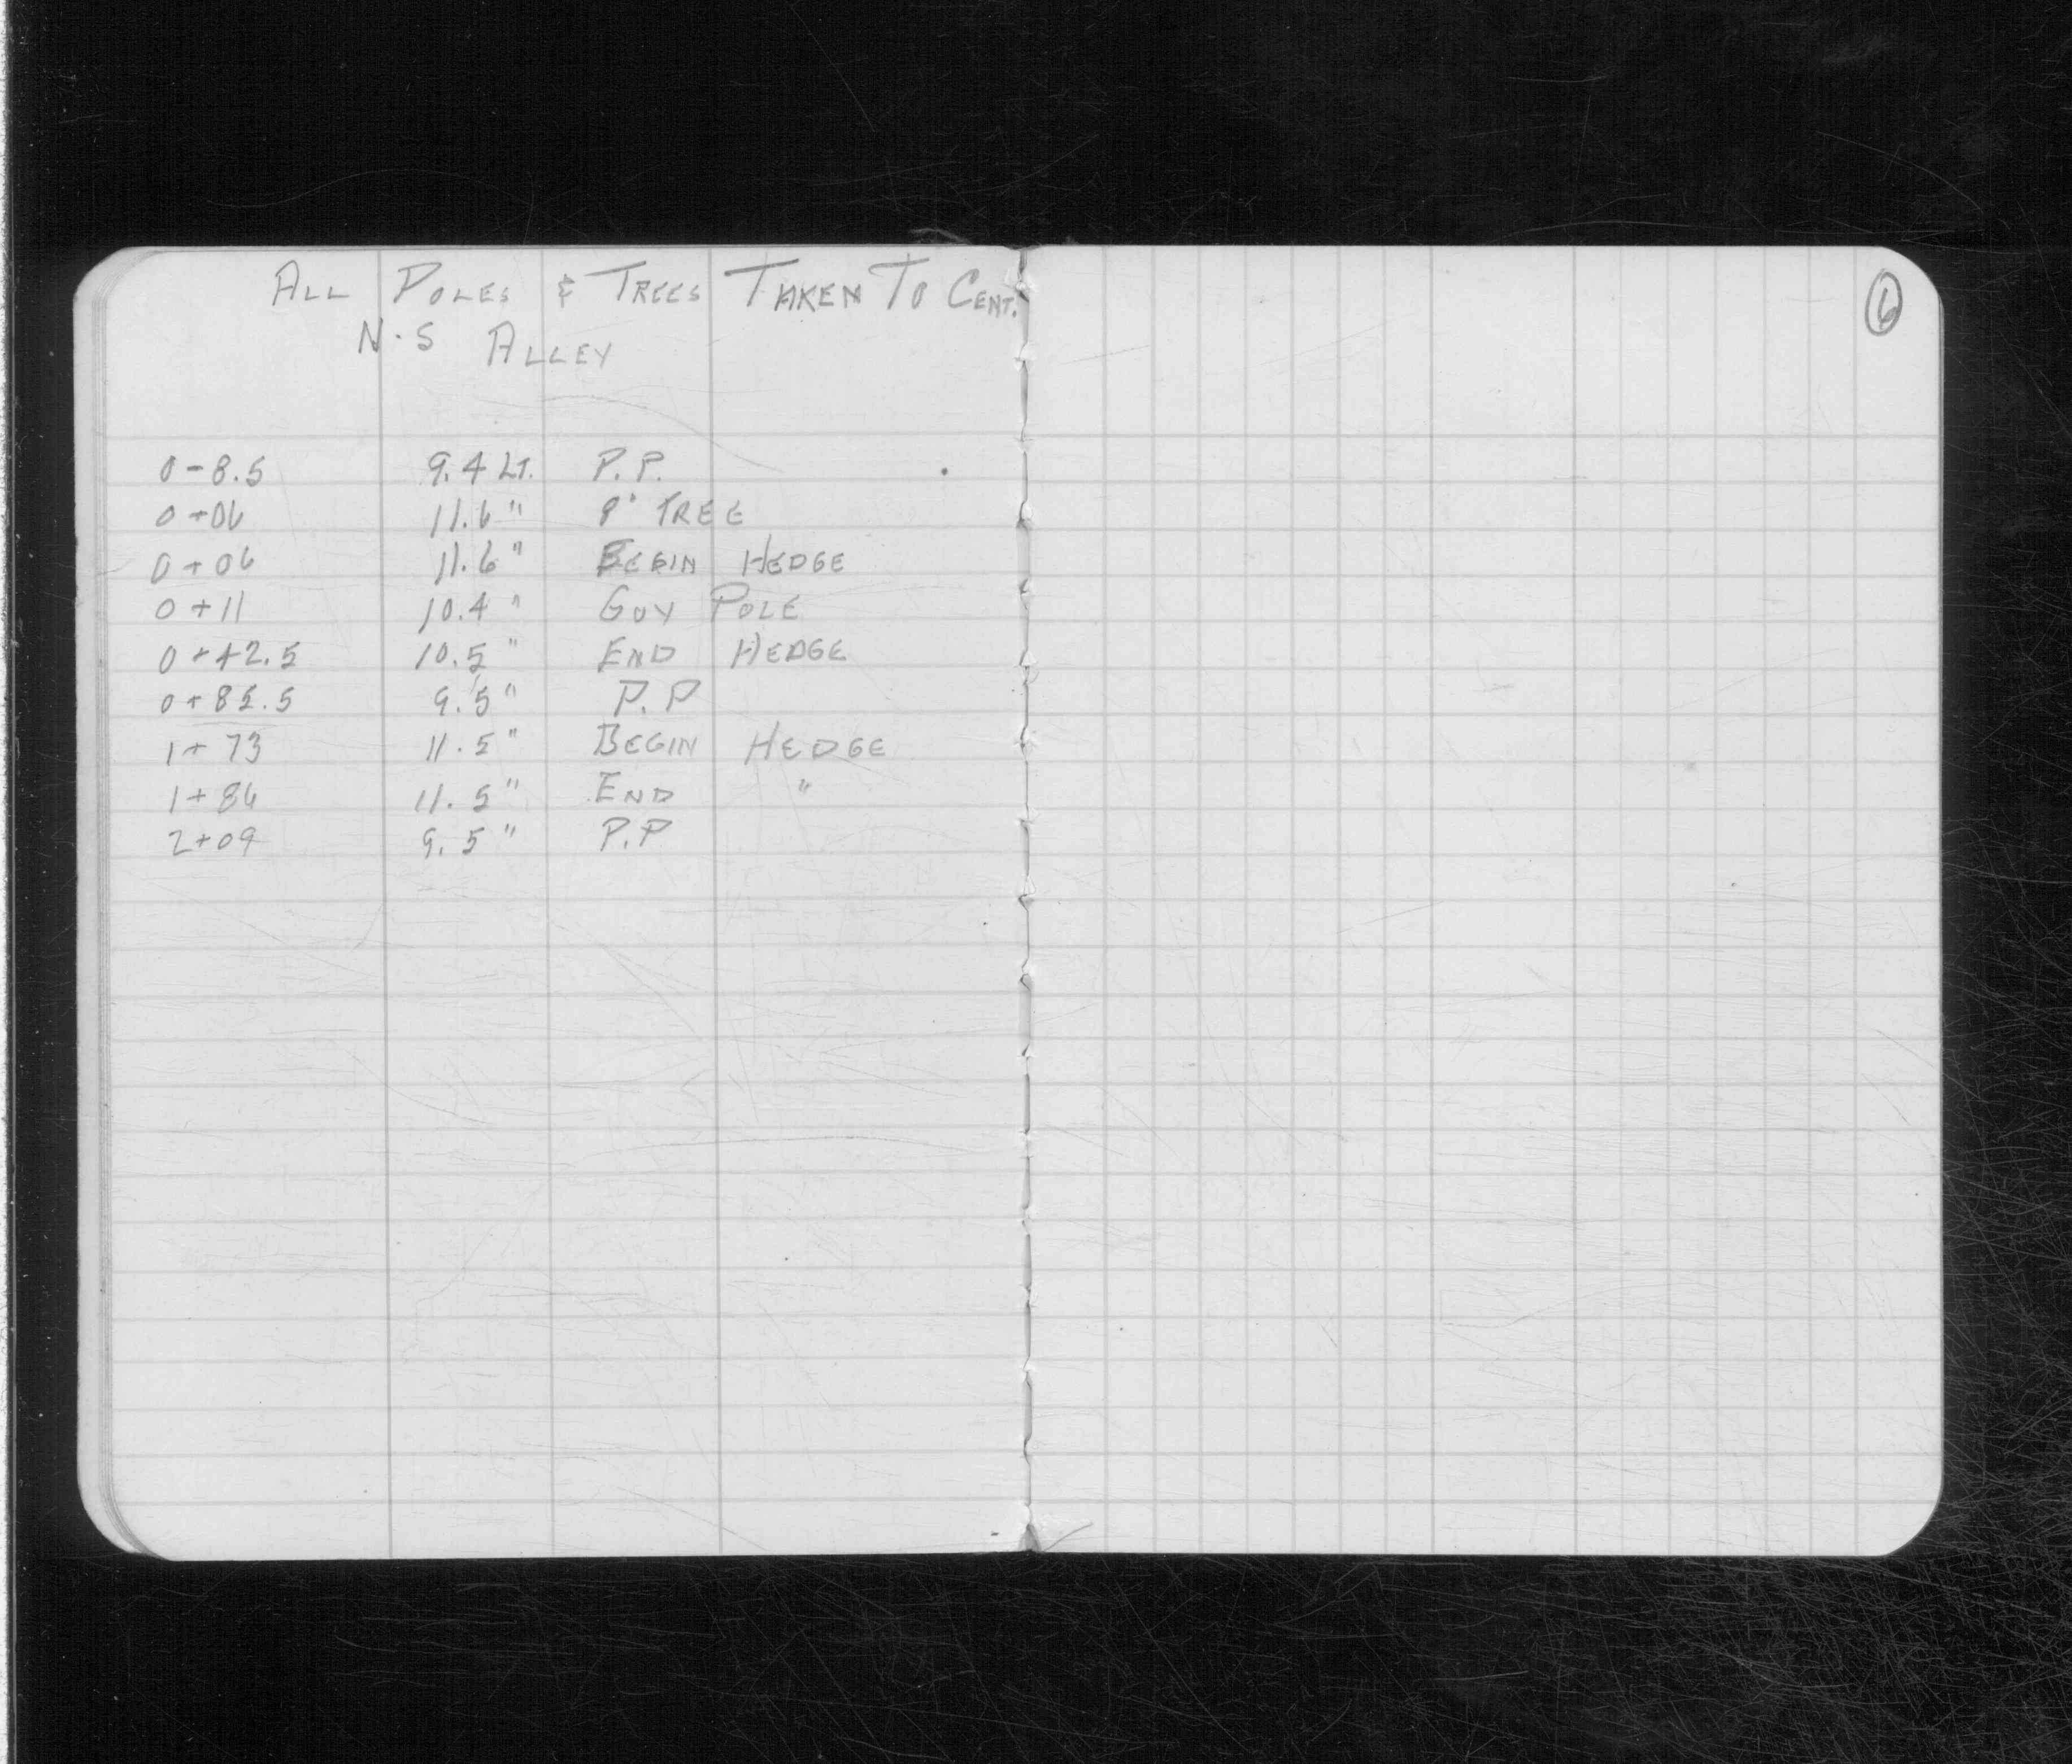 ALL POLES & TREES TAKEN TO CENT.
N-S ALLEY
6
0-8.5 9.4 LT. P.P.
0+06 11.6 " 8" TREE
0+06 11.6 " BEGIN HEDGE
0+11 10.4 " GUY POLE
0+42.5 10.5 " END HEDGE
0+85.5 9.5 " P.P
1+73 11.5 " BEGIN HEDGE
1+86 11.5 " END "
2+09 9.5 " P.P